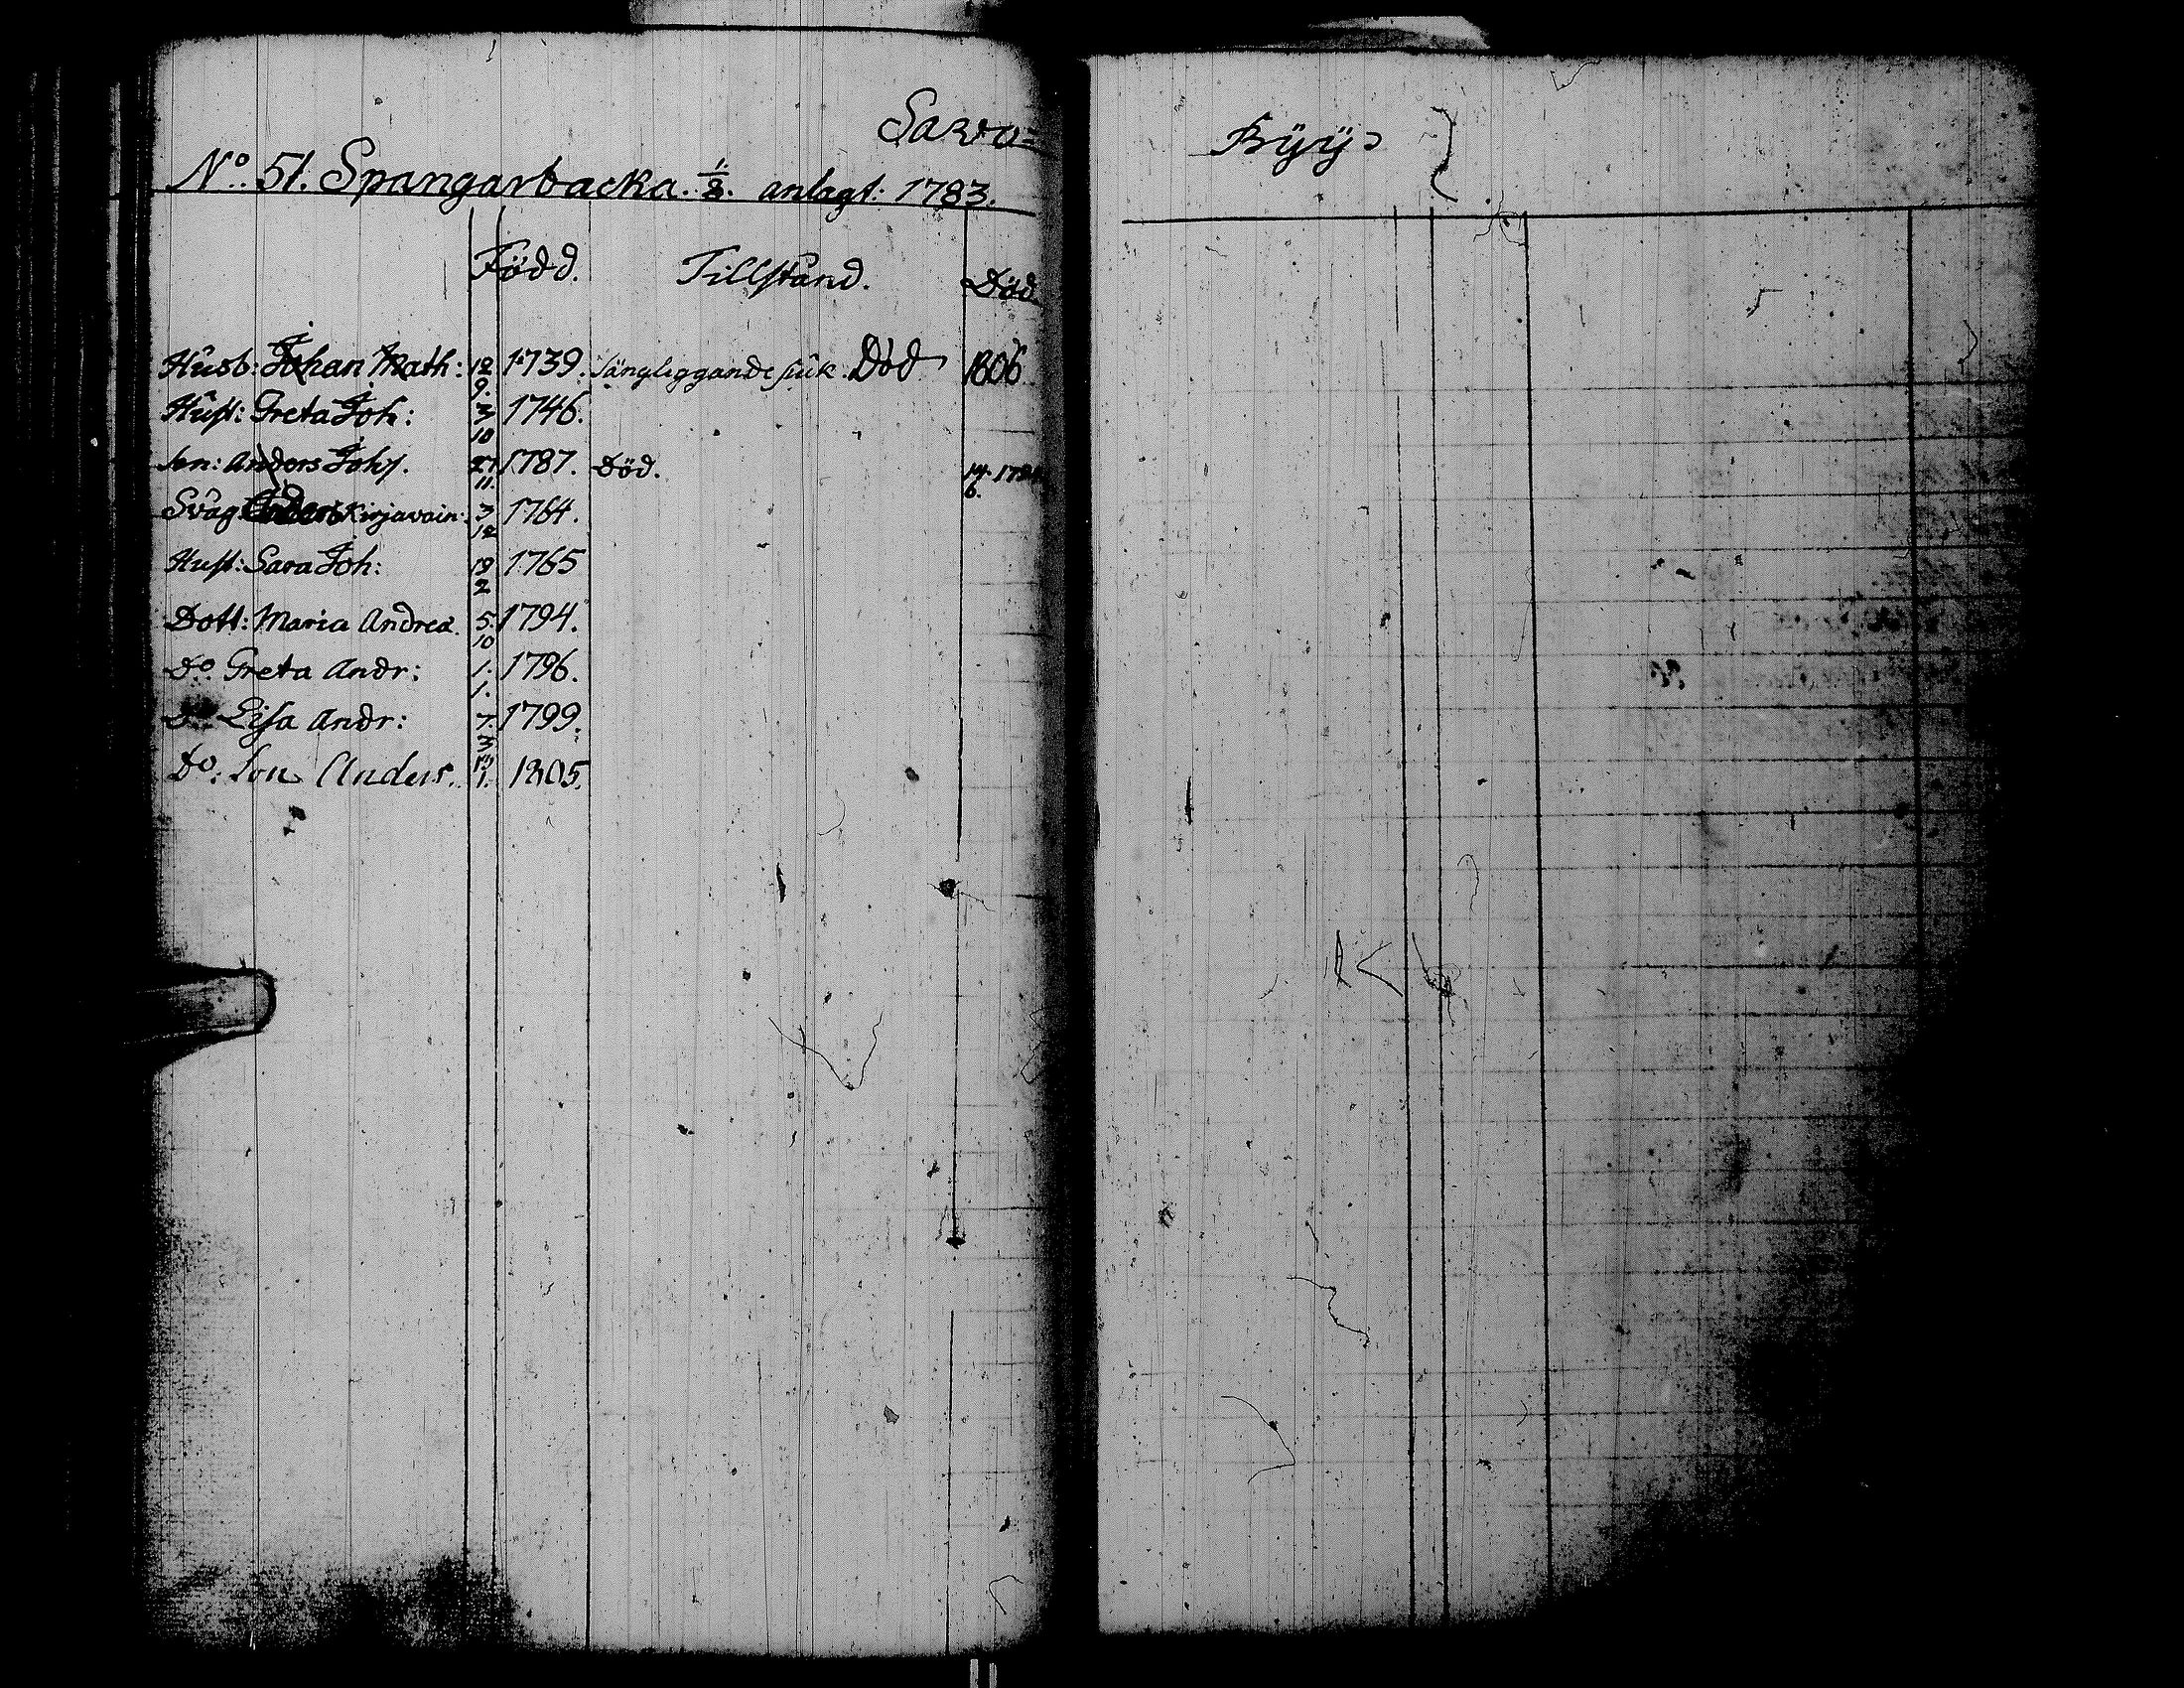 Sarvo=
Byÿ
No: 51. Spangarbacka. 1/8. anlagt: 1783.
Född. Tillstånd. Död
Husb: Johan Math: 12/9. 1739. Sängliggande siuk. Död 1806
Hust: Greta Joh: 3/10 1746.
Son: Anders Johs. 27/11. 1787. Död. 14/6.
Svåg. Anders Kirjavain: 3/12 1764.
Hust: Sara Joh: 19/2 1765
Dott: Maria Andreæ. 5./10 1794.
Do Greta Andr: 1./1. 1796.
Do Lisa Andr: 7./3 1799.
Do: Son Anders. /1. 1805.